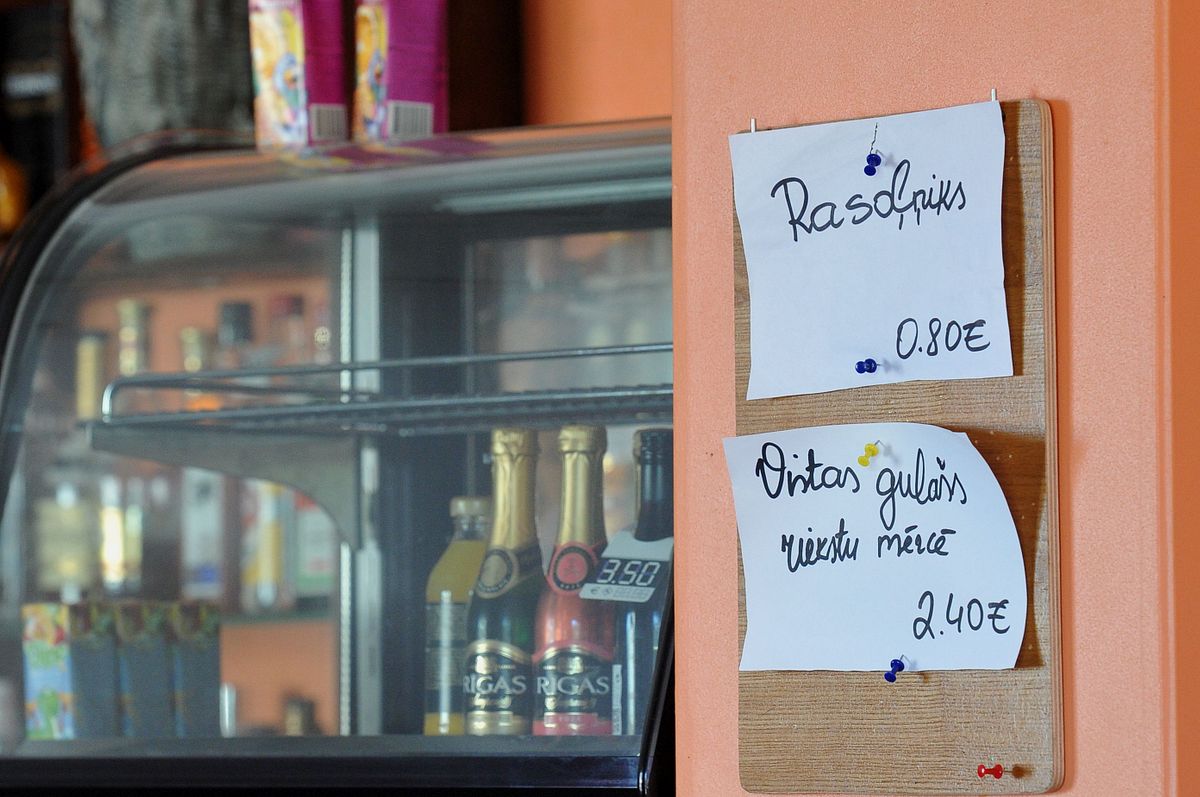 Rasoļņiks
0.80€
Vistas gulašs
riekstu mērcē
2.40€
3.50
RIGAS
RIGAS